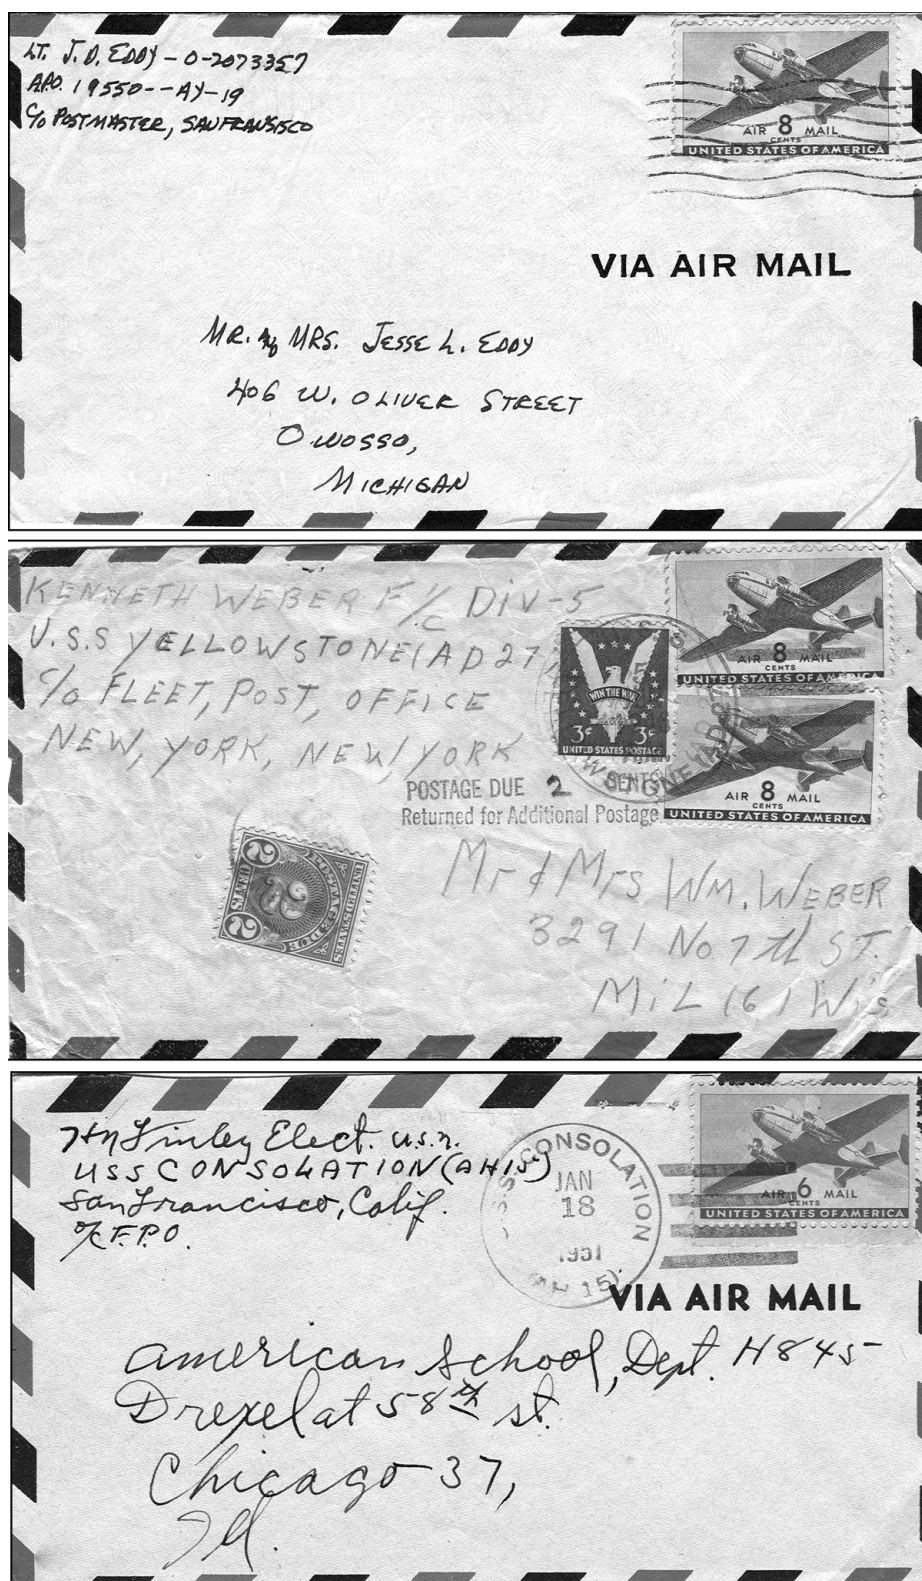 LT. J. D. EDDY - O-2073357
APO. 19550--AY-19
C/O POSTMASTER, SAN FRANSISCO
AIR 8 MAIL
CENTS
UNITED STATES OF AMERICA
VIA AIR MAIL
MR. & MRS. JESSE L. EDDY
406 W. OLIVER STREET
OWOSSO,
MICHIGAN
KENNETH WEBER F 1/C DIV-5
U.S.S YELLOWSTONE (AD 27)
C/O FLEET, POST, OFFICE
NEW, YORK, NEW, YORK
WIN THE WAR
3¢ 3¢
UNITED STATES POSTAGE
AIR 8 MAIL
CENTS
UNITED STATES OF AMERICA
AIR 8 MAIL
CENTS
UNITED STATES OF AMERICA
POSTAGE DUE 2 CENTS
Returned for Additional Postage
UNITED STATES
POSTAGE DUE
2 2
CENTS
Mr & Mrs WM. WEBER
3291 No 7th ST.
MiL (6) Wis
HN Finley Elect. U.S.N.
USS CONSOLATION (AH15)
San Francisco, Calif.
o/c F.P.O.
U.S.S. CONSOLATION
JAN
18
1951
(AH 15)
AIR 6 MAIL
CENTS
UNITED STATES OF AMERICA
VIA AIR MAIL
American School, Dept. H845
Drexel at 58th St.
Chicago 37,
Ill.